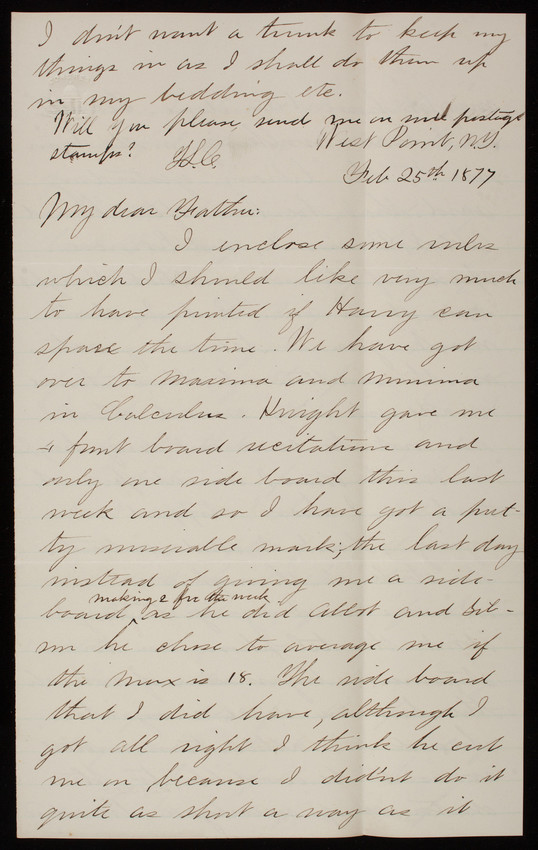 I don't want a trunk to keep my
things in as I shall do them up
in my bedding etc.
Will you please send me on some postage
stamps? T.L.C.
West Point, N.Y.
Feb 25th 1877
My dear Father:
I enclose some rules
which I should like very much
to have printed if Harry can
spare the time. We have got
over to maxima and minima
in Calculus. Knight gave me
4 front board recitations and
only one side board this last
week and so I have got a pret-
ty miserable mark; the last day
instead of giving me a side-
making 2 for the week
board, as he did Abbot and Bil-
he chose to average me if
the max is 18. The side board
that I did have, although I
got all right I think he cut
me on because I didn't do it
quite as short a way as it